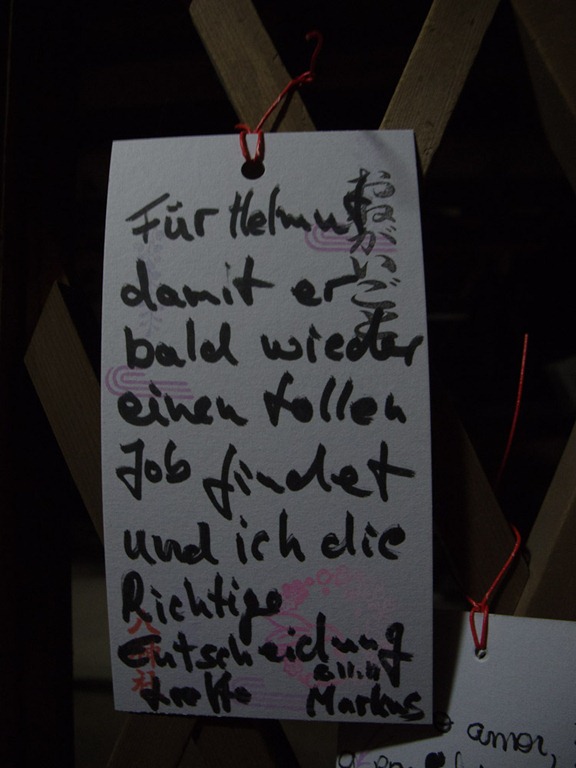 Für Helmut
damit er
bald wieder
einen tollen
Job findet
und ich die
Richtige
Entscheidung
treffe Markus
8.11.11
おねがいごと
amor,